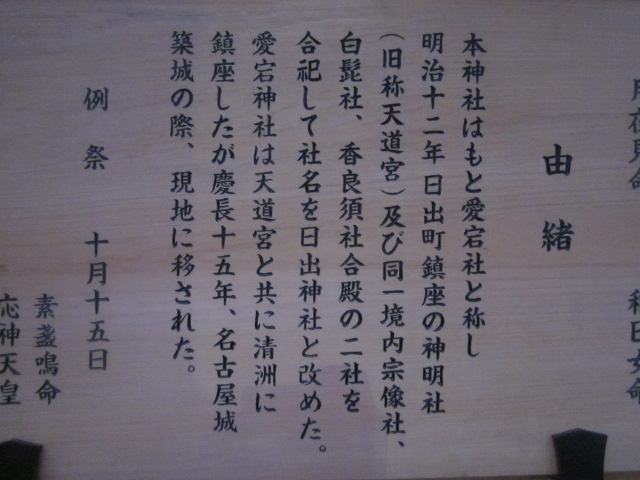 月夜見命
稚日女命
由緒
本神社はもと愛宕社と称し
明治十二年日出町鎮座の神明社
(旧称天道宮)及び同一境内宗像社、
白髭社、香良須社合殿の二社を
合祀して社名を日出神社と改めた。
愛宕神社は天道宮と共に清洲に
鎮座したが慶長十五年、名古屋城
築城の際、現地に移された。
例祭 十月十五日
素盞鳴命
応神天皇